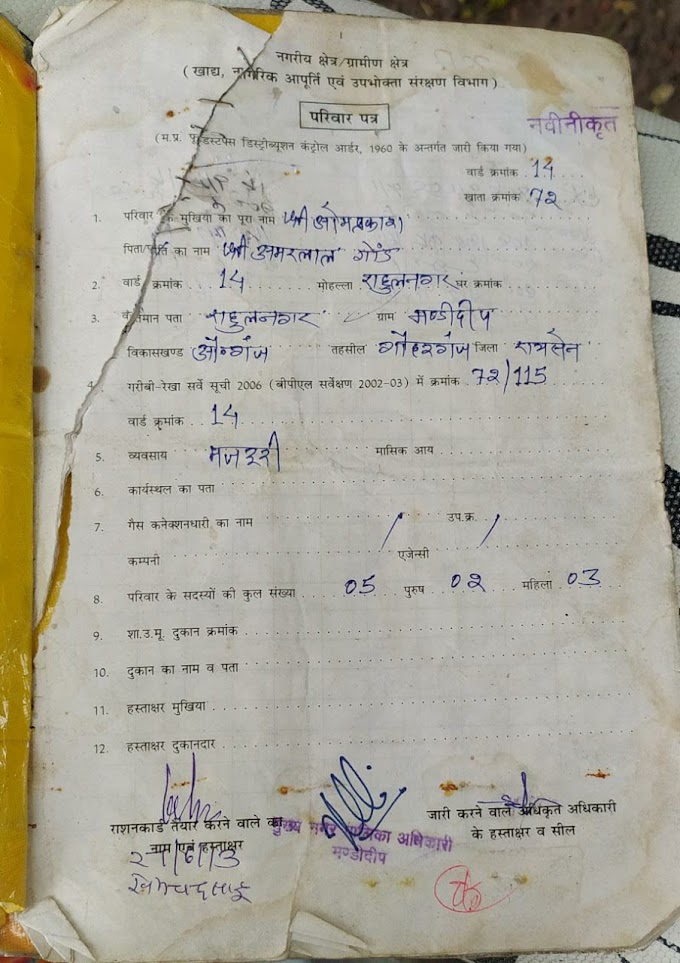 नगरीय क्षेत्र/ग्रामीण क्षेत्र
( खाद्य, नागरिक आपूर्ति एवं उपभोक्ता संरक्षण विभाग )
परिवार पत्र
नवीनीकृत
(म.प्र. फूडस्टफ्स डिस्ट्रीब्यूशन कंट्रोल आर्डर, 1960 के अन्तर्गत जारी किया गया)
वार्ड क्रमांक 14
खाता क्रमांक 72
1. परिवार के मुखिया का पूरा नाम श्री ओमप्रकाश
पिता/पति का नाम श्री अमरलाल गोंड
2. वार्ड क्रमांक 14 मोहल्ला राहुलनगर घर क्रमांक
3. वर्तमान पता राहुलनगर ग्राम मण्डीदीप
विकासखण्ड तहसील गौहरगंज जिला रायसेन
4. गरीबी-रेखा सर्वे सूची 2006 (बीपीएल सर्वेक्षण 2002-03) में क्रमांक 72/115
वार्ड क्रमांक 14
5. व्यवसाय मजदूरी मासिक आय
6. कार्यस्थल का पता
7. गैस कनेक्शनधारी का नाम / उप.क्र. /
कम्पनी एजेन्सी
8. परिवार के सदस्यों की कुल संख्या 05 पुरुष 02 महिला 03
9. शा.उ.मू. दुकान क्रमांक
10. दुकान का नाम व पता
11. हस्ताक्षर मुखिया
12. हस्ताक्षर दुकानदार
राशनकार्ड तैयार करने वाले का
नाम एवं हस्ताक्षर
मुख्य नगर पालिका अधिकारी
मण्डीदीप
जारी करने वाले अधिकृत अधिकारी
के हस्ताक्षर व सील